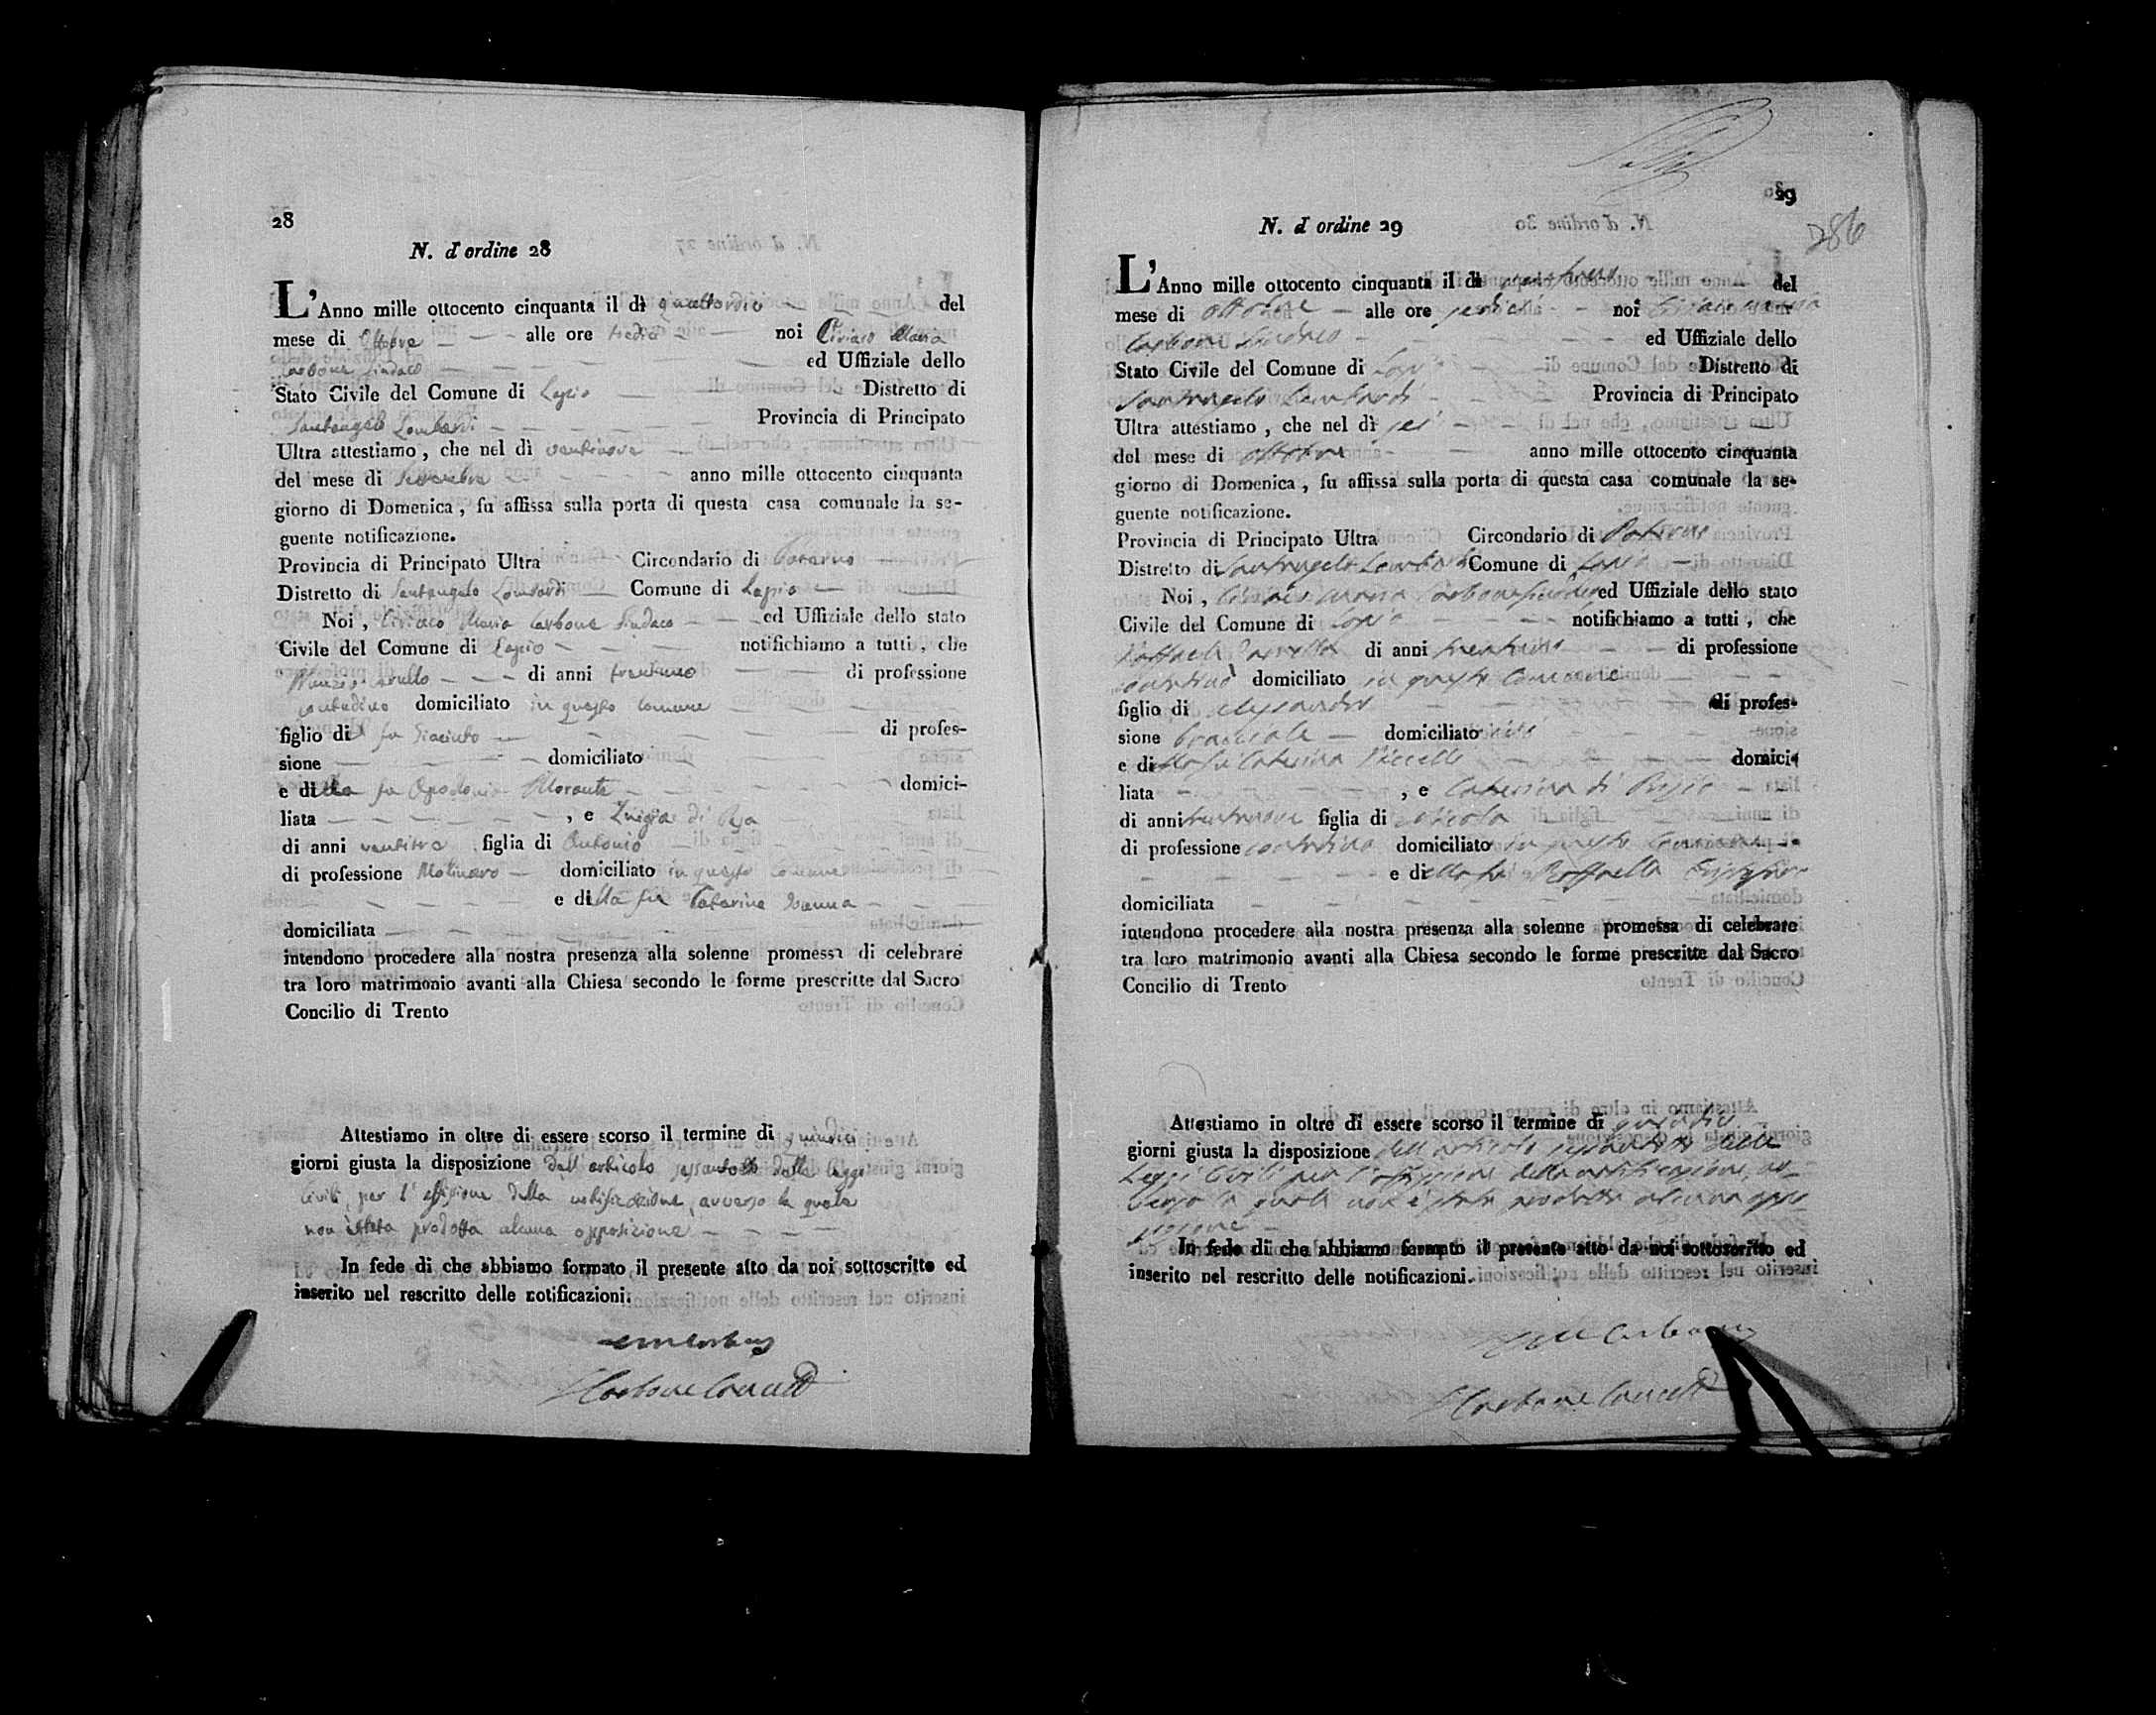 28
N. d'ordine 28
L'Anno mille ottocento cinquanta il dì quattordici del
mese di Ottobre alle ore tredici noi Ciriaco Maria
Carbone Sindaco ed Uffiziale dello
Stato Civile del Comune di Lapio Distretto di
Santangelo Lombardi Provincia di Principato
Ultra attestiamo, che nel dì ventinove
del mese di Settembre anno mille ottocento cinquanta
giorno di Domenica, fu affissa sulla porta di questa casa comunale la se-
guente notificazione.
Provincia di Principato Ultra Circondario di Paterno
Distretto di Santangelo Lombardi Comune di Lapio
Noi, Ciriaco Maria Carbone Sindaco ed Uffiziale dello stato
Civile del Comune di Lapio notifichiamo a tutti, che
di anni trentuno di professione
contadino domiciliato in questo Comune
figlio di fu Giacinto di profes-
sione domiciliato
e della fu Morante domici-
liata , e Luigia di
di anni ventitre figlia di Antonio
di professione Molinaro domiciliato in questo comune
e della fu Catarina
domiciliata
intendono procedere alla nostra presenza alla solenne promessa di celebrare
tra loro matrimonio avanti alla Chiesa secondo le forme prescritte dal Sacro
Concilio di Trento
Attestiamo in oltre di essere scorso il termine di quindici
giorni giusta la disposizione dall'articolo sessantotto delle leggi
Civili, per l'affissione della notificazione, avverso la quale
non è stata prodotta alcuna opposizione
In fede di che abbiamo formato il presente atto da noi sottoscritto ed
inserito nel rescritto delle notificazioni.
Carbone
29
286
N. d'ordine 29
L'Anno mille ottocento cinquanta il dì del
mese di ottobre alle ore sedici noi Ciriaco Maria
Carbone Sindaco ed Uffiziale dello
Stato Civile del Comune di Lapio Distretto di
Santangelo Lombardi Provincia di Principato
Ultra attestiamo, che nel dì sei
del mese di ottobre anno mille ottocento cinquanta
giorno di Domenica, fu affissa sulla porta di questa casa comunale la se-
guente notificazione.
Provincia di Principato Ultra Circondario di Paterno
Distretto di Santangelo Lombardi Comune di Lapio
Noi, Ciriaco Maria Carbone Sindaco ed Uffiziale dello stato
Civile del Comune di Lapio notifichiamo a tutti, che
Raffaele di anni di professione
contadino domiciliato in questo Comune
figlio di Alessandro di profes-
sione bracciale domiciliato ivi
e della fu Caterina domici-
liata , e Caterina di
di anni figlia di Nicola
di professione contadino domiciliato in questo Comune
e della fu Raffaella
domiciliata
intendono procedere alla nostra presenza alla solenne promessa di celebrare
tra loro matrimonio avanti alla Chiesa secondo le forme prescritte dal Sacro
Concilio di Trento
Attestiamo in oltre di essere scorso il termine di quindici
giorni giusta la disposizione dell'articolo sessantotto delle
Leggi Civili per l'affissione della notificazione, av-
verso la quale non è stata prodotta alcuna oppo
sizione
In fede di che abbiamo formato il presente atto da noi sottoscritto ed
inserito nel rescritto delle notificazioni.
Carbone
Carbone